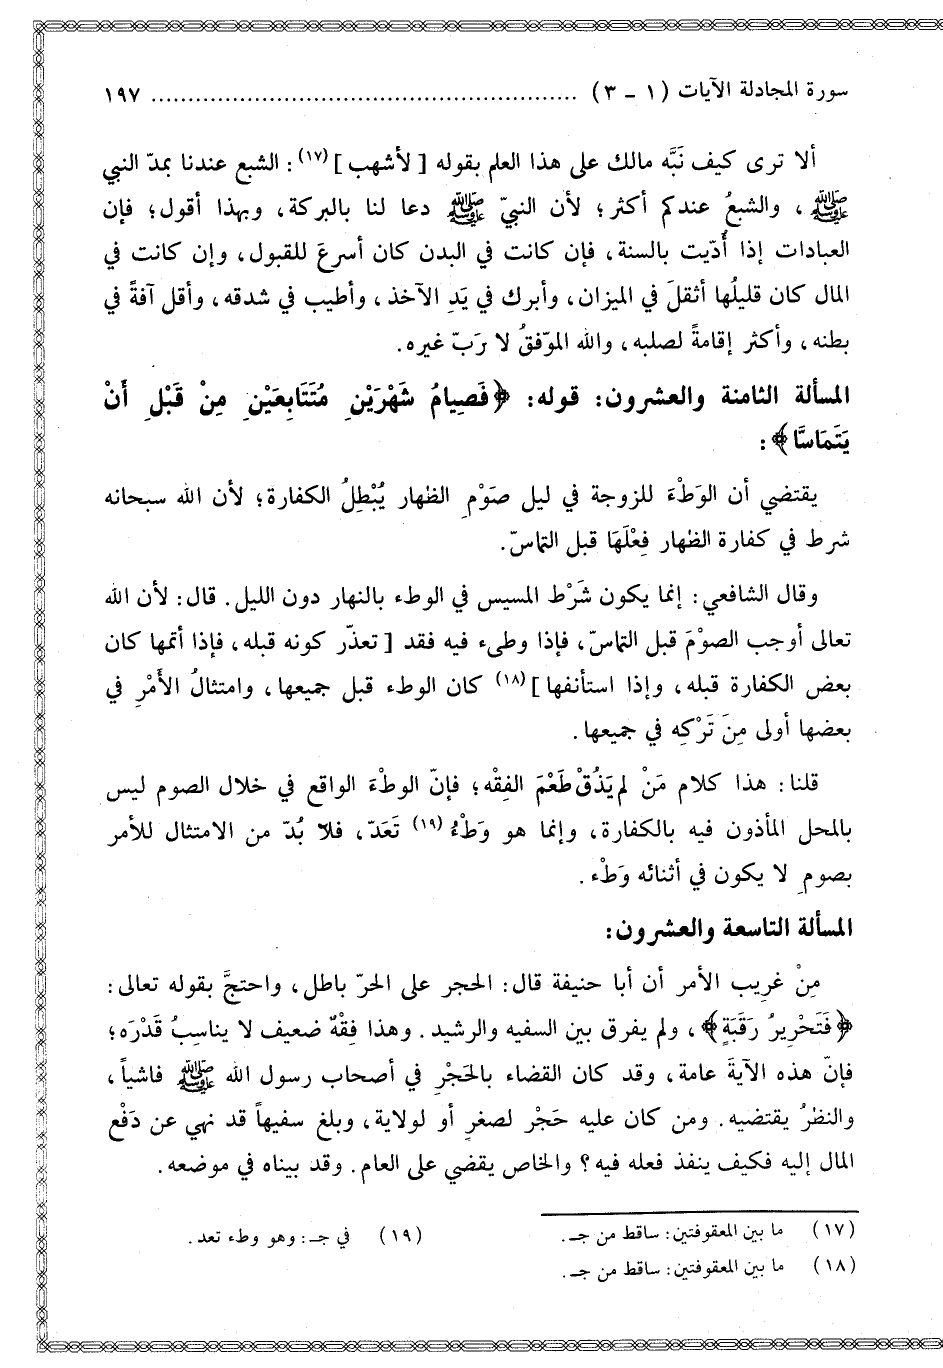 سورة المجادلة الآيات (١ - ٣) ......................................................... ١٩٧
ألا ترى كيف نَبَّه مالك على هذا العلم بقوله [لأشهب](١٧): الشبع عندنا بمدّ النبي
ﷺ، والشبعُ عندكم أكثر؛ لأن النبيّ ﷺ دعا لنا بالبركة، وبهذا أقول؛ فإن
العبادات إذا أُدّيت بالسنة، فإن كانت في البدن كان أسرعَ للقبول، وإن كانت في
المال كان قليلُها أثقلَ في الميزان، وأبرك في يَدِ الآخذ، وأطيب في شدقه، وأقل آفةً في
بطنه، وأكثر إقامةً لصلبه، والله الموّفقُ لا رَبّ غيره.
المسألة الثامنة والعشرون: قوله: ﴿فَصِيامُ شَهْرَيْنِ مُتَتَابِعَيْنِ مِنْ قَبْلِ أَنْ
يَتَمَاسَّا﴾:
يقتضي أن الوَطْءَ للزوجة في ليل صَوْمِ الظهار يُبْطِلُ الكفارة؛ لأن الله سبحانه
شرط في كفارة الظهار فِعْلَهَا قبل التماسّ.
وقال الشافعي: إنما يكون شَرْط المسيس في الوطء بالنهار دون الليل. قال: لأن الله
تعالى أوجب الصوْمَ قبل التماسّ، فإذا وطىء فيه فقد [تعذّر كونه قبله، فإذا أتمها كان
بعض الكفارة قبله، وإذا استأنفها](١٨) كان الوطء قبل جميعها، وامتثالُ الأَمْرِ في
بعضها أولى مِنَ تَرْكِه في جميعها.
قلنا: هذا كلام مَنْ لم يَذُقْ طَعْمَ الفِقْه؛ فإنّ الوطْءَ الواقع في خلال الصوم ليس
بالمحل المأذون فيه بالكفارة، وإنما هو وَطْءُ(١٩) تَعَدّ، فلا بُدّ من الامتثال للأمر
بصومِ لا يكون في أثنائه وَطْء.
المسألة التاسعة والعشرون:
مِنْ غريب الأمر أن أبا حنيفة قال: الحجر على الحرّ باطل، واحتجَّ بقوله تعالى:
﴿فَتَحْرِيرُ رَقَبَةٍ﴾، ولم يفرق بين السفيه والرشيد. وهذا فِقْهٌ ضعيف لا يناسبُ قَدْرَه؛
فإنّ هذه الآيةَ عامة، وقد كان القضاء بالحَجْرِ في أصحاب رسول الله ﷺ فاشياً،
والنظرُ يقتضيه. ومن كان عليه حَجْر لصغرِ أو لولاية، وبلغ سفيهاً قد نهي عن دَفْع
المال إليه فكيف ينفذ فعله فيه؟ والخاص يقضي على العام. وقد بيناه في موضعه.
(١٧) ما بين المعقوفتين: ساقط من جـ.
(١٨) ما بين المعقوفتين: ساقط من جـ.
(١٩) في جـ: وهو وطء تعد.